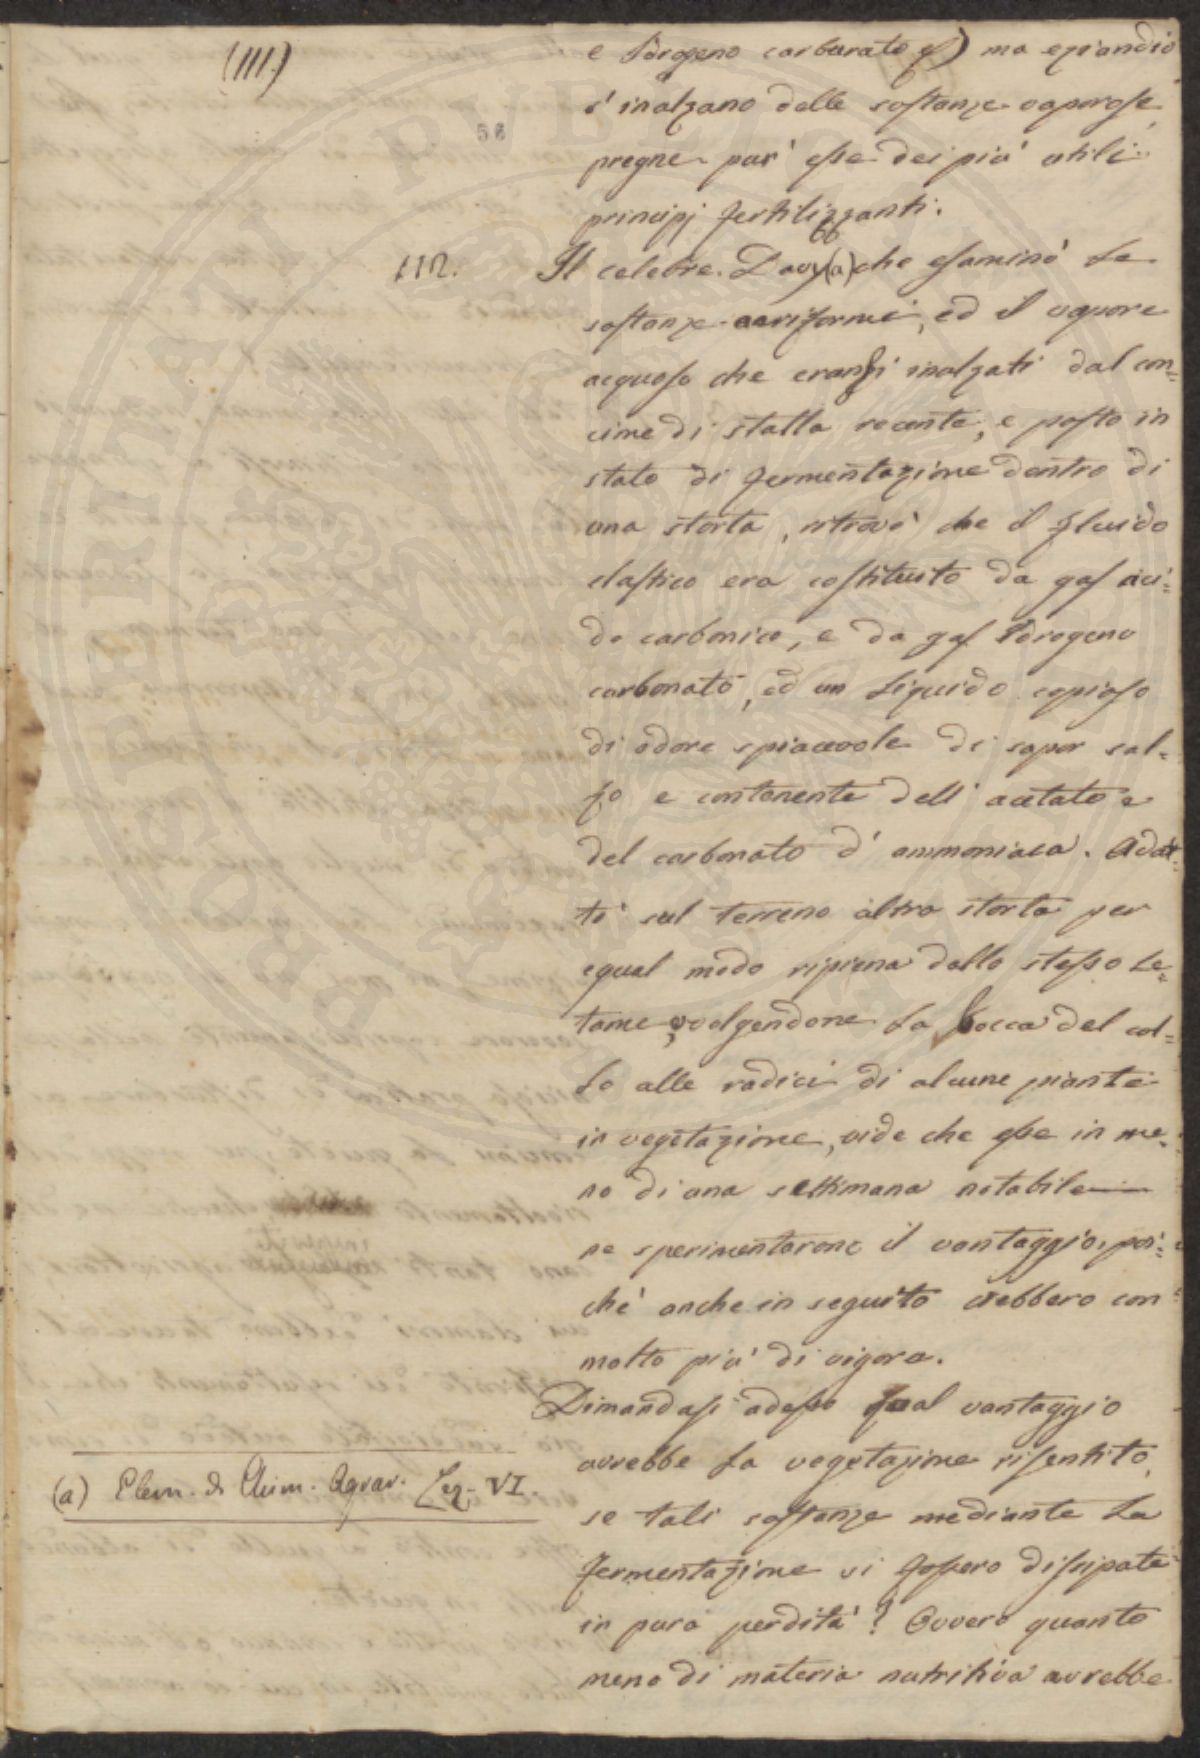 (111.)
58
e Idrogeno carburato &) ma eziandio
s'inalzano delle sostanze vaporose,
pregne pur' esse dei più utili
principj fertilizzanti.
112. Il celebre Davy (a) che esaminò le
sostanze aeriformi, ed il vapore
acquoso che eransi inalzati dal con=
cime di stalla recente, e posto in
stato di fermentazione dentro di
una storta, ritrovò che il fluido
elastico era costituito da gas aci=
do carbonico, e da gas Idrogeno
carbonato, ed un liquido copioso
di odore spiacevole di sapor sal=
so e contenente dell' acetato e
del carbonato d' ammoniaca. Adat=
tò sul terreno altra storta per
equal modo ripiena dallo stesso le=
tame, volgendone la bocca del col=
lo alle radici di alcune piante
in vegetazione, vide che esse in me=
no di una settimana notabile
ne sperimentarono il vantaggio, poi=
chè anche in seguito crebbero con
molto più di vigore.
Dimandasi adesso qual vantaggio
avrebbe la vegetazione risentito,
se tali sostanze mediante la
fermentazione si fossero dissipate
in pura perdita? Ovvero quanto
meno di materia nutritiva avrebbe
(a) Elem. di Chim. Agrar. Lez. VI.
PROSPERITATI PVBLICAE